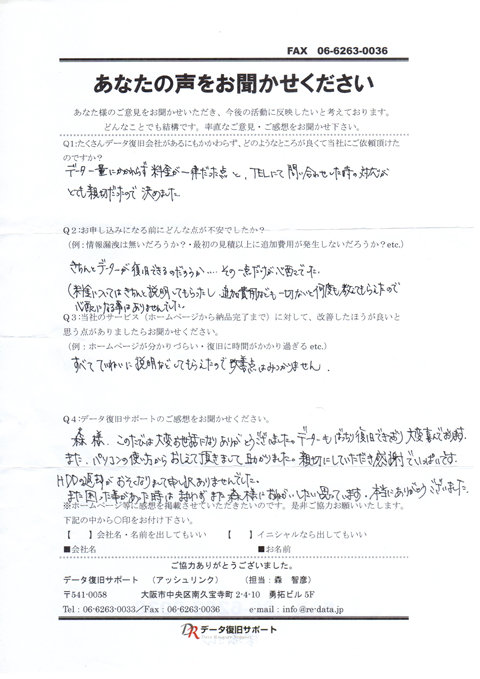 FAX 06-6263-0036
あなたの声をお聞かせください
あなた様のご意見をお聞かせいただき、今後の活動に反映したいと考えております。
どんなことでも結構です。率直なご意見・ご感想をお聞かせ下さい。
Q1:たくさんデータ復旧会社があるにもかかわらず、どのようなところが良くて当社にご依頼頂けた
のですか？
データー量にかかわらず料金が一律だった点と、TELにて問い合わせした時の対応が
とても親切だったので決めました
Q2:お申し込みになる前にどんな点が不安でしたか？
(例:情報漏洩は無いだろうか？・最初の見積以上に追加費用が発生しないだろうか？etc.)
きちんとデーターが復旧できるのだろうか....その一点だけが心配でした。
(料金についてはきちんと説明してもらったし、追加費用なども一切ないと何度も教えてもらえたので
心配になる事はありませんでした。
Q3:当社のサービス（ホームページから納品完了まで）に対して、改善したほうが良いと
思う点がありましたらお聞かせください。
(例：ホームページが分かりづらい・復旧に時間がかかり過ぎる etc.)
すべてていねいに説明などしてもらえたので改善点はみつかりません.
Q4:データ復旧サポートのご感想をお聞かせください。
森様、このたびは大変お世話になりありがとうございました。データーもばっちり復旧できており大変喜んでおります.
また、パソコンの使い方からおしえて頂きまして助かりました。親切にしていただき感謝でいっぱいです.
HDDの返却がおそくなりまして申し訳ありませんでした.
また困った事があった時は まよわず また森様におねがいしたい思っています. 本当にありがとうございました.
※ホームページ等に感想を掲載させていただきたいのです。是非ご協力お願いいたします。
下記の中から○印をお付け下さい。
【　】会社名・名前を出してもいい 【　】イニシャルなら出してもいい
■会社名 ■お名前
ご協力ありがとうございました。
データ復旧サポート （アッシュリンク） （担当：森 智彦）
〒541-0058 大阪市中央区南久宝寺町 2-4-10 勇拓ビル 5F
Tel : 06-6263-0033／Fax : 06-6263-0036 e-mail : info@re-data.jp
DR データ復旧サポート